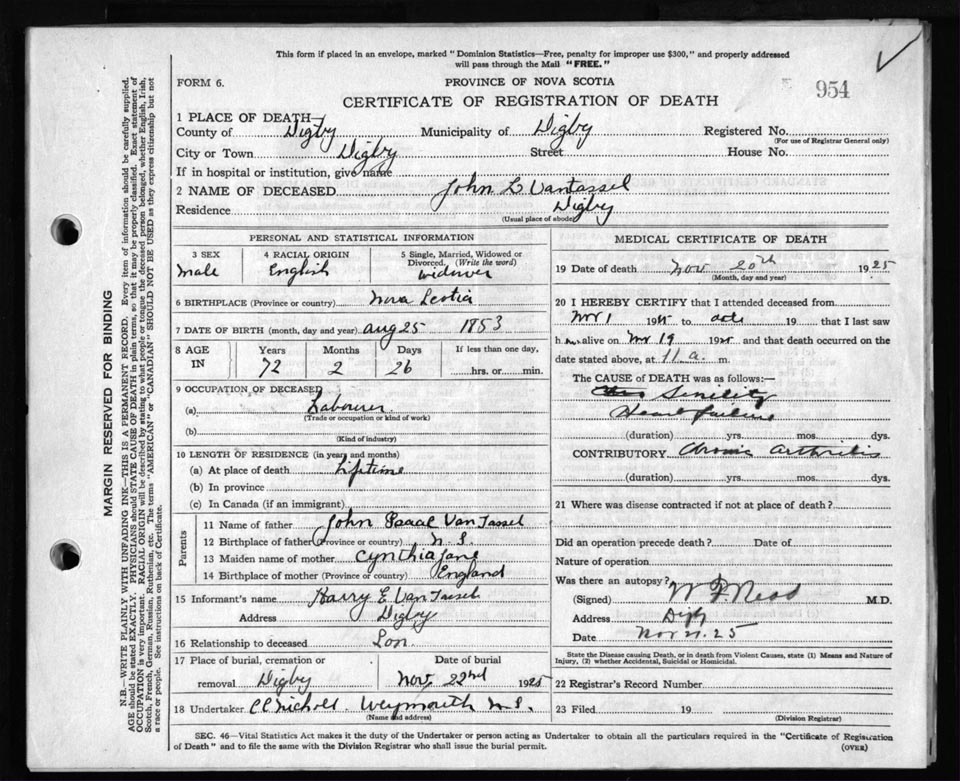 This form if placed in an envelope, marked "Dominion Statistics—Free, penalty for improper use $300," and properly addressed
will pass through the Mail "FREE."
FORM 6.
PROVINCE OF NOVA SCOTIA
954
CERTIFICATE OF REGISTRATION OF DEATH
1 PLACE OF DEATH
County of Digby Municipality of Digby Registered No.
(For use of Registrar General only)
City or Town Digby Street House No.
If in hospital or institution, give name
2 NAME OF DECEASED John L Vantassel
Residence Digby
(Usual place of abode)
PERSONAL AND STATISTICAL INFORMATION
3 SEX 4 RACIAL ORIGIN 5 Single, Married, Widowed or
Divorced. (Write the word)
male English widower
6 BIRTHPLACE (Province or country) Nova Scotia
7 DATE OF BIRTH (month, day and year) Aug 25 1853
8 AGE IN Years Months Days If less than one day,
72 2 26 hrs. or min.
9 OCCUPATION OF DECEASED
(a) Labourer
(Trade or occupation or kind of work)
(b)
(Kind of industry)
10 LENGTH OF RESIDENCE (in years and months)
(a) At place of death Lifetime
(b) In province
(c) In Canada (if an immigrant)
Parents
11 Name of father John Isaac Van Tassel
12 Birthplace of father (Province or country) N.S.
13 Maiden name of mother Cynthia Jane
14 Birthplace of mother (Province or country) England
15 Informant's name Harry E Van Tassel
Address Digby
16 Relationship to deceased Son
17 Place of burial, cremation or Date of burial
removal Digby Nov 22nd 1925
18 Undertaker Weymouth N.S.
(Name and address)
MEDICAL CERTIFICATE OF DEATH
19 Date of death Nov 20th 1925
(Month, day and year)
20 I HEREBY CERTIFY that I attended deceased from
Nov 1 19 to 19 that I last saw
h alive on Nov 19 1925 and that death occurred on the
date stated above, at 11 a. m.
The CAUSE of DEATH was as follows:—
Senility
Heart failure
(duration) yrs. mos. dys.
CONTRIBUTORY Chronic arthritis
(duration) yrs. mos. dys.
21 Where was disease contracted if not at place of death?
Did an operation precede death? Date of
Nature of operation
Was there an autopsy?
(Signed) M.D.
Address Digby
Date Nov 21. 25
State the Disease causing Death, or in death from Violent Causes, state (1) Means and Nature of
Injury, (2) whether Accidental, Suicidal or Homicidal.
22 Registrar's Record Number
23 Filed 19
(Division Registrar)
SEC. 46—Vital Statistics Act makes it the duty of the Undertaker or person acting as Undertaker to obtain all the particulars required in the "Certificate of Registration
of Death" and to file the same with the Division Registrar who shall issue the burial permit.
(OVER)
MARGIN RESERVED FOR BINDING
N.B.—WRITE PLAINLY WITH UNFADING INK—THIS IS A PERMANENT RECORD. Every item of information should be carefully supplied.
AGE should be stated EXACTLY. PHYSICIANS should STATE CAUSE OF DEATH in plain terms, so that it may be properly classified. Exact statement of
OCCUPATION is very important. RACIAL ORIGIN will be described by stating to what people or tongue the deceased person belonged, whether English, Irish,
Scotch, French, German, Russian, Ruthenian, etc. The terms "AMERICAN" or "CANADIAN" SHOULD NOT BE USED as they express citizenship but not
a race or people. See instructions on back of Certificate.